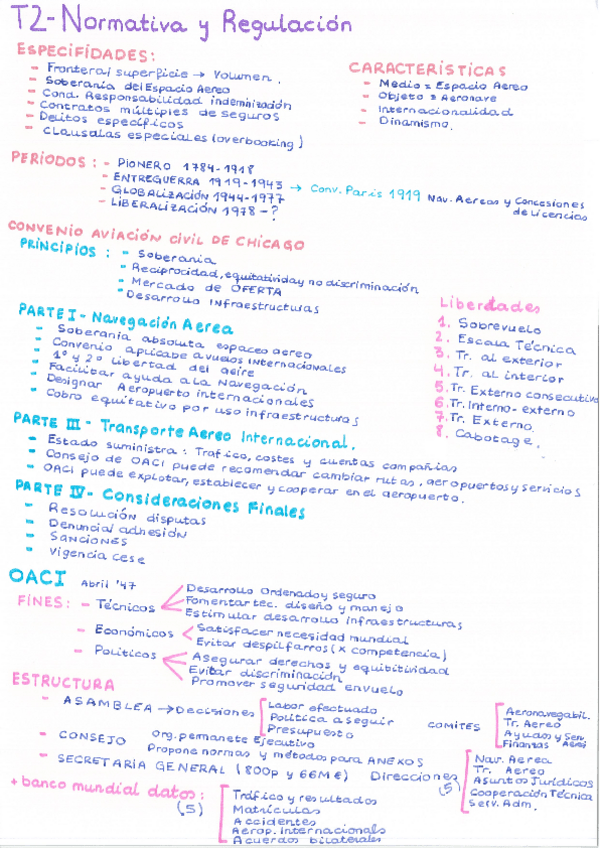 T2- Normativa y Regulación
ESPECIFIDADES:
- Frontera/superficie → Volumen.
- Soberanía del Espacio Aereo
- Cond. Responsabilidad indemnización
- Contratos múltiples de seguros
- Delitos específicos
- Clausulas especiales (overbooking)
CARACTERÍSTICAS
- Medio = Espacio Aereo
- Objeto = Aeronave
- Internacionalidad
- Dinamismo.
PERÍODOS: - PIONERO 1784-1918
- ENTREGUERRA 1919-1943 → Conv. París 1919 Nav. Aereas y Concesiones de Licencias
- GLOBALIZACIÓN 1944-1977
- LIBERALIZACIÓN 1978-?
CONVENIO AVIACIÓN CIVIL DE CHICAGO
PRINCIPIOS: - Soberania
- Reciprocidad, equitativida y no discriminación
- Mercado de OFERTA
- Desarrollo Infraestructuras
PARTE I- Navegación Aerea
- Soberania absoluta espaceo aereo
- Convenio aplicabe a vuelos internacionales
- 1º y 2º libertad del aeire
- Facilitar ayuda a la Navegación
- Designar Aeropuerto internacionales
- Cobro equitativo por uso infraestructuras
Libertades
1. Sobrevuelo
2. Escala Técnica
3. Tr. al exterior
4. Tr. al interior
5. Tr. Externo consecutivo
6. Tr. Interno-externo
7. Tr. Externo.
8. Cabotage.
PARTE III- Transporte Aereo Internacional.
- Estado suministra: Trafico, costes y cuentas compañías
- Consejo de OACI puede recomendar cambiar rutas, aeropuertos y servicios
- OACI puede explotar, establecer y cooperar en el aeropuerto.
PARTE IV- Consideraciones Finales
- Resolución disputas
- Denuncia/adhesión
- Sanciones
- Vigencia cese
OACI Abril '47
FINES: - Técnicos
Desarrollo Ordenado y seguro
Fomentar tec. diseño y manejo
Estimular desarrollo infraestructuras
- Económicos
Satisfacer necesidad mundial
Evitar despilfarros (x competencia)
- Políticos
Asegurar derechos y equibitividad
Evitar discriminación
Promover seguridad en vuelo
ESTRUCTURA
- ASAMBLEA → Decisiones
Labor efectuado
Política a seguir
Presupuesto
COMITÉS
Aeronavegabil.
Tr. Aereo
Ayudas y Serv.
Finanzas Aerei
- CONSEJO Org. permanete Ejecutivo
Propone normas y métodos para ANEXOS
- SECRETARÍA GENERAL (800p y 66M€) Direcciones (5)
Nav. Aerea
Tr. Aereo
Asuntos Jurídicos
Cooperación Técnica
Serv. Adm.
+ banco mundial datos: (5)
Tráfico y resultados
Matrículas
Accidentes
Aerop. Internacionals
Acuerdos bilaterales